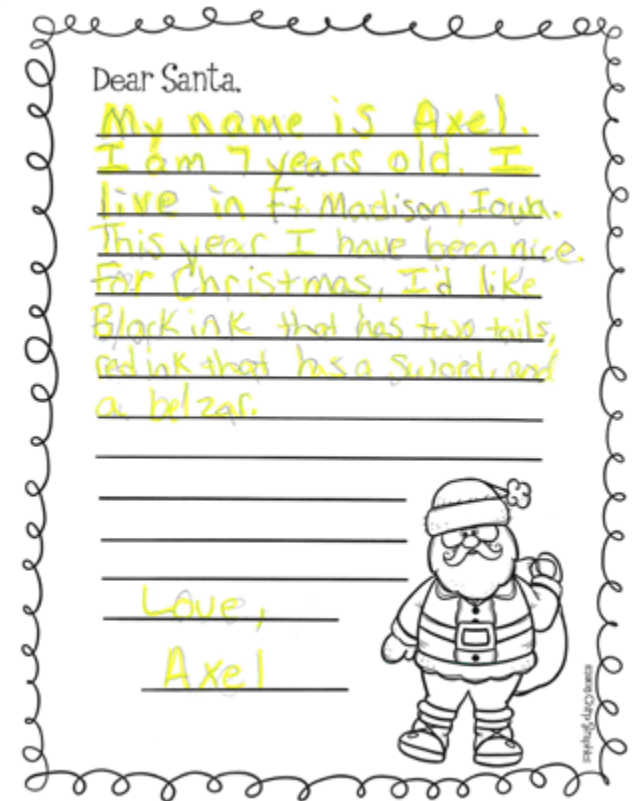 Dear Santa,
My name is Axel.
I am 7 years old. I
live in Ft Madison, Iowa.
This year I have been nice.
For Christmas, I'd like
Black ink that has two tails,
red ink that has a sword, and
a belzar.
Love,
Axel